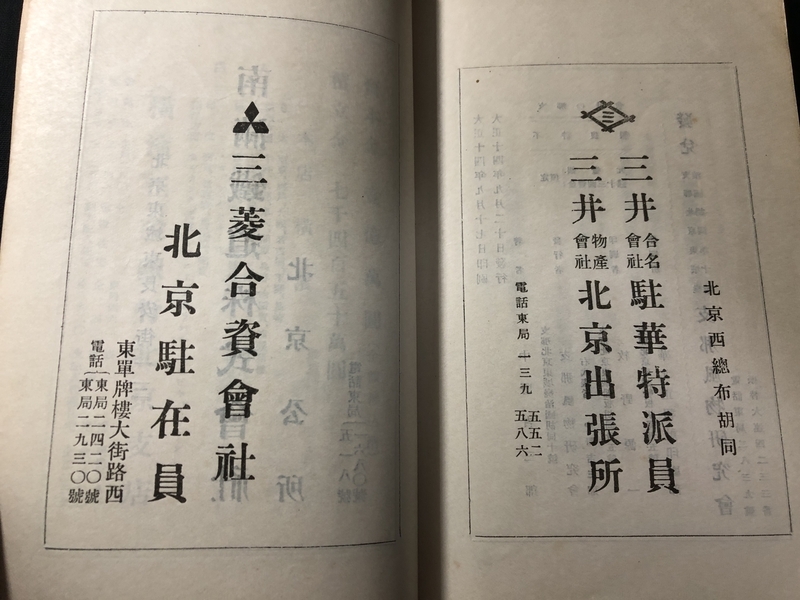 北京西總布胡同
三井合名會社駐華特派員
三井物產會社北京出張所
電話東局 一三九 五五二 五八六
三菱合資會社
北京駐在員
東單牌樓大街路西
電話 東局二四二〇號
東局二九三〇號